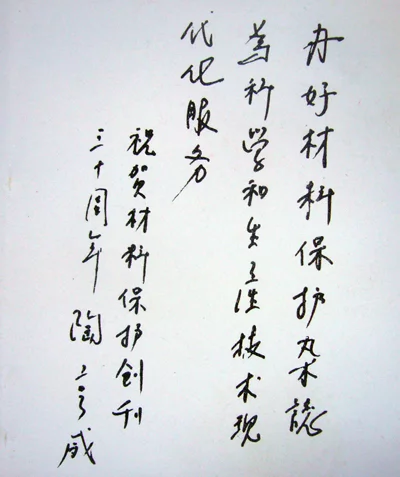 办好材料保护杂誌
為科学和生产性技术现
代化服务
祝贺材料保护创刊
三十周年 陶亨咸